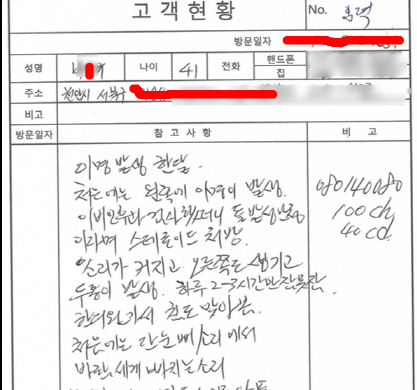 고객현황
No.
방문일자
성명 나이 41 전화 핸드폰
집
주소 천안시 서북구
비고
방문일자 참고사항 비고
이명 발생 한달.
처음에는 왼쪽에 이명이 발생.
이비인후과 검사했더니 돌발성난청
이라며 스테로이드 처방. 100ch
소리가 커지고 오른쪽도 생기고 40cd.
두통이 발생. 하루 2~3시간만 잠못잔
한의원가서 침도 맞아봄.
처음에는 단순 삐소리에서
바람 세게 빠지는소리